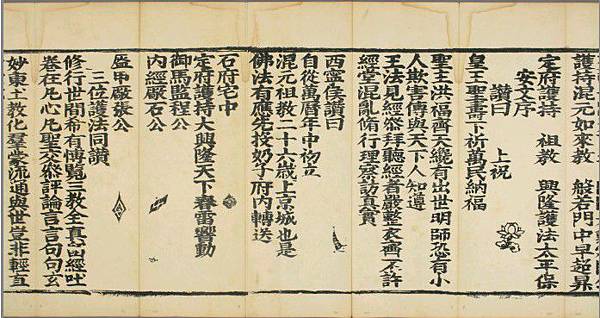 護持混元如來教　般若門中早超昇
定府護持　祖教　興隆護法太平保
安文序
讃曰　上祝
皇王聖壽　下祈萬民納福
聖主洪福齊天　纔有出世明師恐有小
人欺害傳與天下人知道
王法見經叅拜聽經者嚴整衣齊不許
經堂混亂脩行理察訪真實
西靈侯讃曰
自從萬曆年中初立
混元祖教二十六歲上京城也是
佛法有應先投奶子府內轉送
石府宅中
定府護持大興隆天下春雷響動
御馬監程公
內經廠石公
盔甲廠張公
三位護法同讃
修行世間希有博覽三教全真留經吐
卷在凡心凡聖交叅評論言言句句玄
妙東土教化羣蒙流通與世豈非輕直